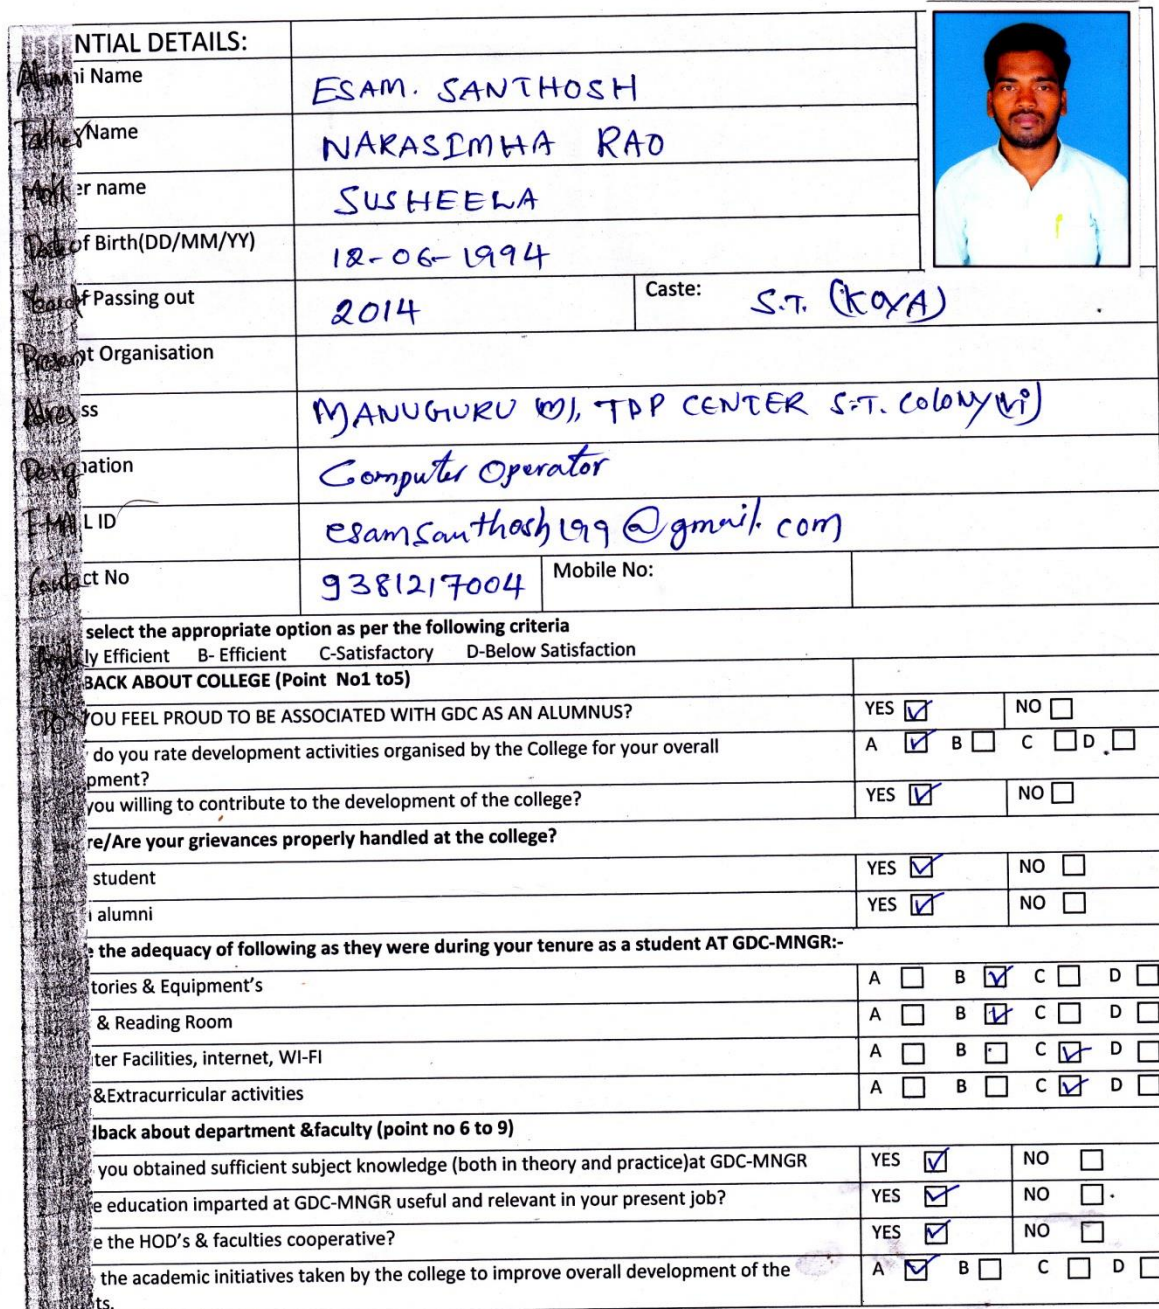 NTIAL DETAILS:
Alumni Name ESAM. SANTHOSH
Father Name NARASIMHA RAO
Mother name SUSHEELA
Date of Birth(DD/MM/YY) 12-06-1994
Year of Passing out 2014 Caste: S.T. (KOYA)
Present Organisation
Adress MANUGURU (M), TDP CENTER S.T. COLONY (Vi)
Designation Computer Operator
E-MAIL ID esamsanthosh199@gmail.com
Contact No 9381217004 Mobile No:
select the appropriate option as per the following criteria
ly Efficient B- Efficient C-Satisfactory D-Below Satisfaction
BACK ABOUT COLLEGE (Point No1 to5)
DO YOU FEEL PROUD TO BE ASSOCIATED WITH GDC AS AN ALUMNUS? YES NO
do you rate development activities organised by the College for your overall A B C D
pment?
you willing to contribute to the development of the college? YES NO
re/Are your grievances properly handled at the college?
student YES NO
alumni YES NO
the adequacy of following as they were during your tenure as a student AT GDC-MNGR:-
tories & Equipment's A B C D
& Reading Room A B C D
ter Facilities, internet, WI-FI A B C D
&Extracurricular activities A B C D
dback about department &faculty (point no 6 to 9)
you obtained sufficient subject knowledge (both in theory and practice)at GDC-MNGR YES NO
e education imparted at GDC-MNGR useful and relevant in your present job? YES NO
e the HOD's & faculties cooperative? YES NO
the academic initiatives taken by the college to improve overall development of the A B C D
ts.